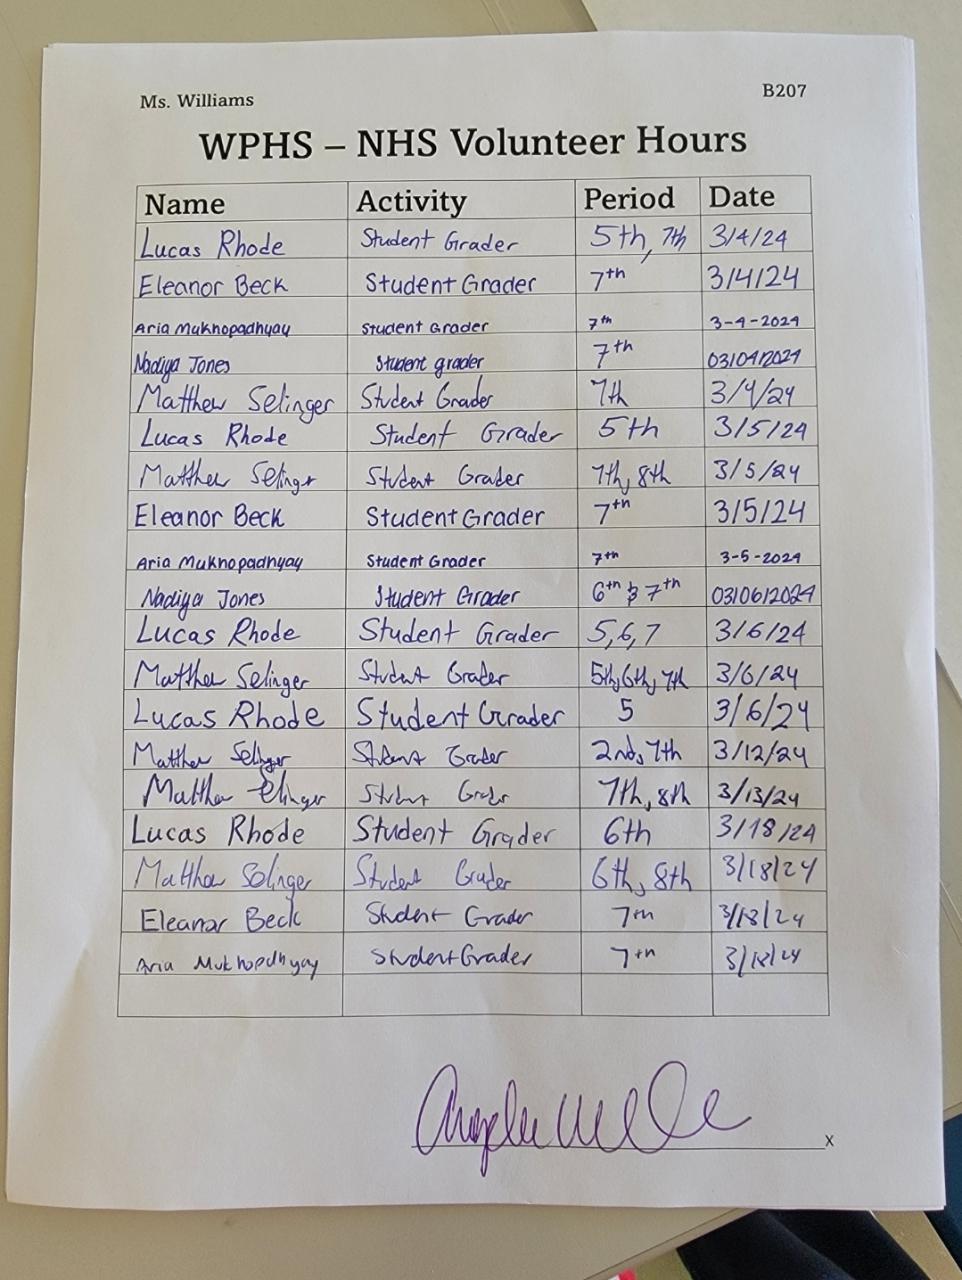 Ms. Williams B207
WPHS – NHS Volunteer Hours
Name Activity Period Date
Lucas Rhode Student Grader 5th, 7th 3/4/24
Eleanor Beck Student Grader 7th 3/4/24
Aria Mukhopadhyay Student Grader 7th 3-4-2024
Nadiya Jones Student grader 7th 03/04/2024
Matthew Selinger Student Grader 7th 3/4/24
Lucas Rhode Student Grader 5th 3/5/24
Matthew Selinger Student Grader 7th, 8th 3/5/24
Eleanor Beck Student Grader 7th 3/5/24
Aria Mukhopadhyay Student Grader 7th 3-5-2024
Nadiya Jones Student Grader 6th & 7th 03/06/2024
Lucas Rhode Student Grader 5,6,7 3/6/24
Matthew Selinger Student Grader 5th, 6th, 7th 3/6/24
Lucas Rhode Student Grader 5 3/6/24
Matthew Selinger Student Grader 2nd, 7th 3/12/24
Matthew Selinger Student Grader 7th, 8th 3/13/24
Lucas Rhode Student Grader 6th 3/18/24
Matthew Selinger Student Grader 6th, 8th 3/18/24
Eleanor Beck Student Grader 7th 3/18/24
Aria Mukhopadhyay Student Grader 7th 3/18/24
x